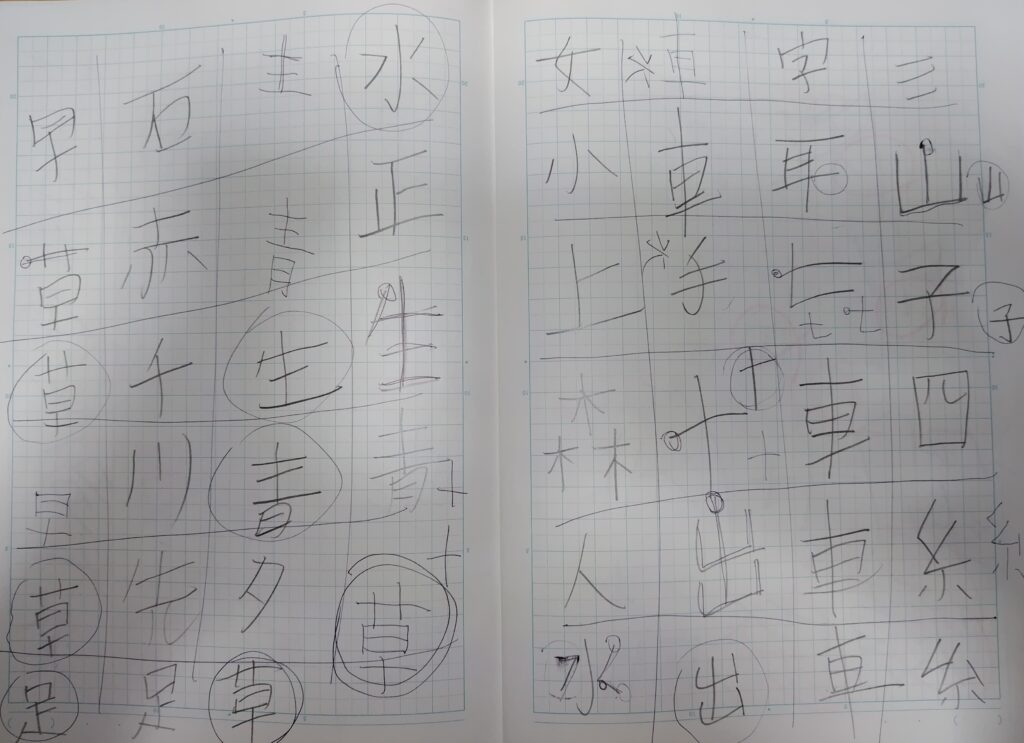 三山山子子四糸糸糸
字耳七七七車車車
車車手十十十出出
女小上森人水
水正生青十十草
青生青夕草
石赤千川先足
早草草草足